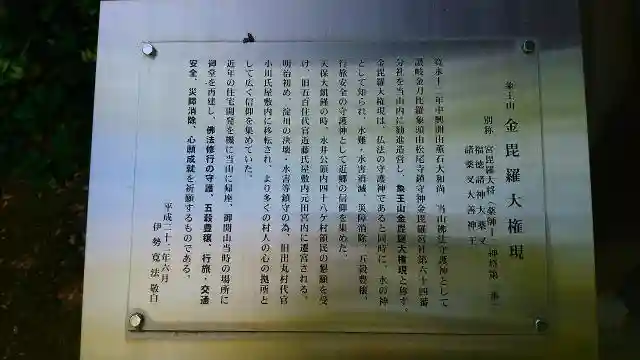 象王山 金毘羅大権現
別称 宮毘羅大将
福徳諸神大薬叉
諸薬叉大善神王
寛永十一年中興開山薫石大和尚、当山佛法守護神として
讃岐金刀比羅象頭山松尾寺鎮守神金毘羅宮第六十四番
分社を当山内に勧進造営し、象王山金毘羅大権現と称す。
金毘羅大権現は、仏法の守護神であると同時に、水の神
として知られ、水難・水害消滅、災障消除、五穀豊穣、
行旅安全の守護神として近郷の信仰を集めた。
天保大飢饉の時、永井公領内四十八ヶ村領民の懇願を受
け、旧五百住代官近藤氏屋敷内元田宮内に遷宮される。
明治初め、淀川の決壊・水害等鎮守の為、旧田丸村代官
小川氏屋敷内に移転され、より多くの村人の心の拠所と
して広く信仰を集めていた。
近年の住宅開発を機に当山に帰座、御開山当時の場所に
御堂を再建し、佛法修行の守護、五穀豊穣、行旅、交通
安全、災障消除、心願成就を祈願するものである。
平成二十二年六月
伊勢寛法敬白